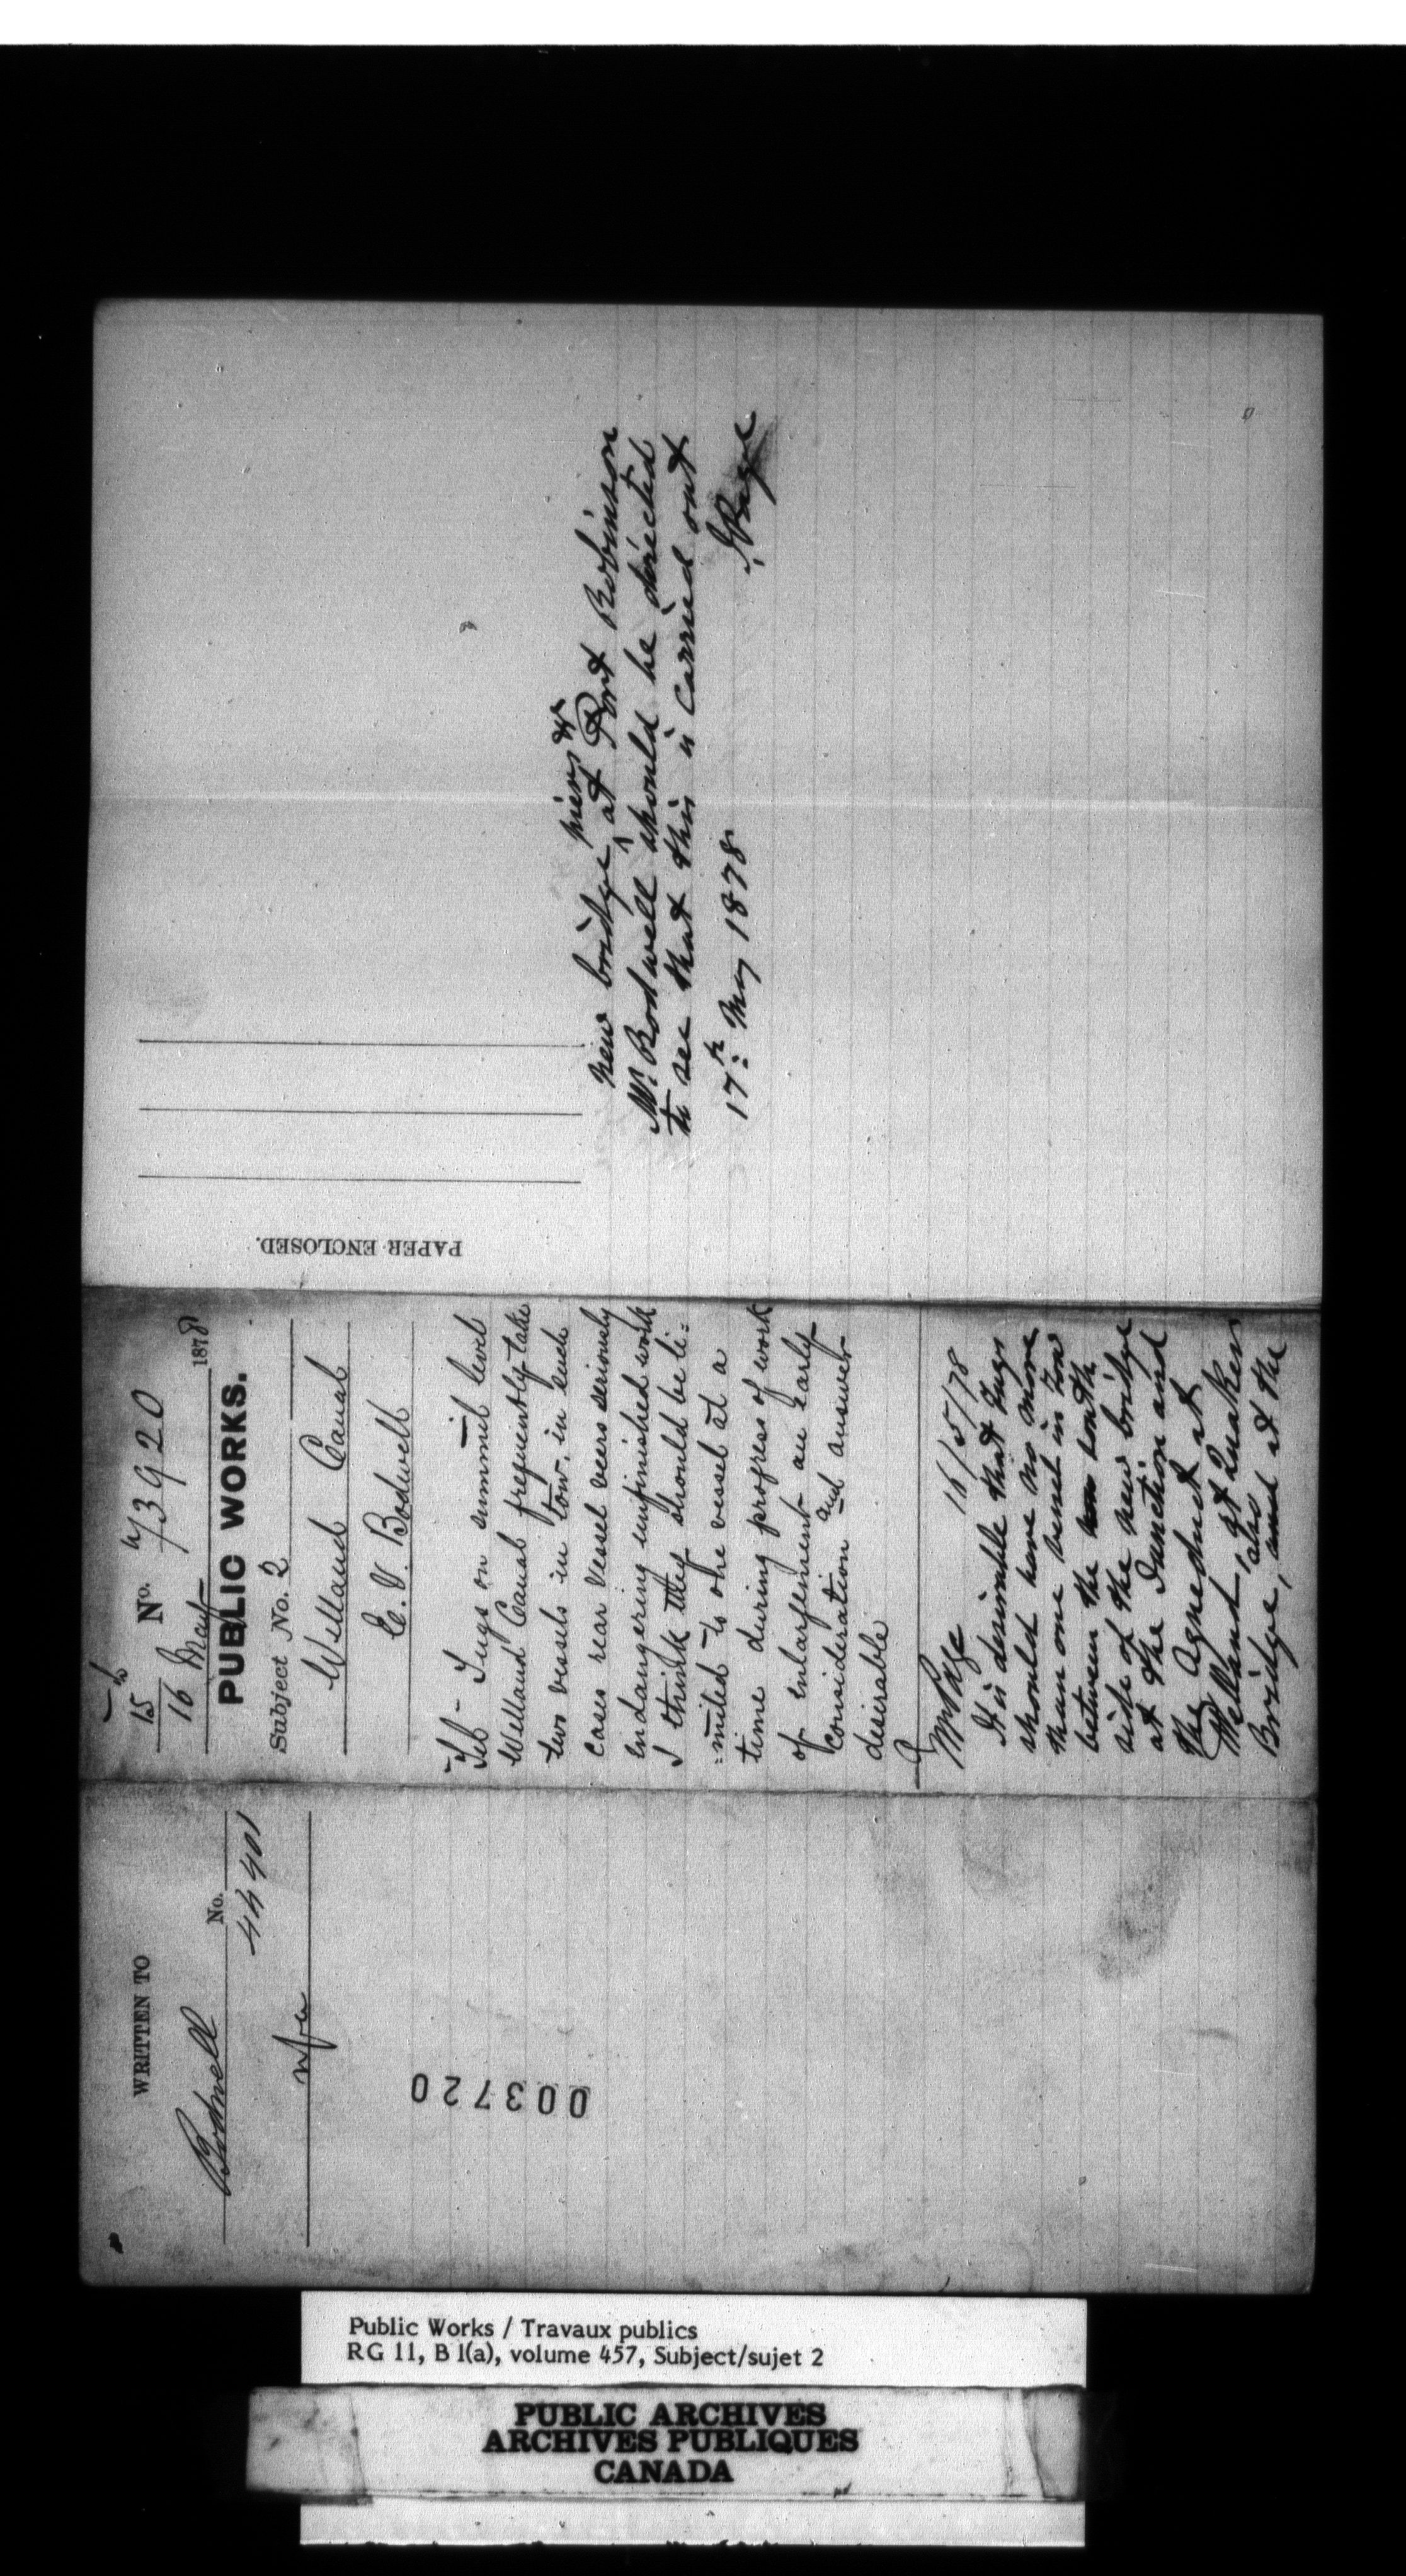 WRITTEN TO
Bodwell
No.
44401
003720
15
16 May 1878
No. 73920
PUBLIC WORKS.
Subject No. 2
Welland Canal
C. V. Bodwell
Tel - Tugs on summit level
Welland Canal frequently take
two vessels in tow, in such
cases rear vessel veers seriously
endangering unfinished work
I think they should be li=
=mited to one vessel at a
time during progress of work
of enlargement an early
consideration and answer
desirable
Mr Page 16/5/78
It is desirable that Tugs
should have no more
than one vessel in Tow
between the south
side of the new bridge
at the Junction and
the Aqueduct at
Welland, at Quaker
Bridge, also and at the
PAPER ENCLOSED.
new bridge piers &c at Port Robinson
Mr. Bodwell should be directed
to see that this is carried out
17th May 1878 J Page
Public Works / Travaux publics
RG 11, B 1(a), volume 457, Subject/sujet 2
PUBLIC ARCHIVES
ARCHIVES PUBLIQUES
CANADA